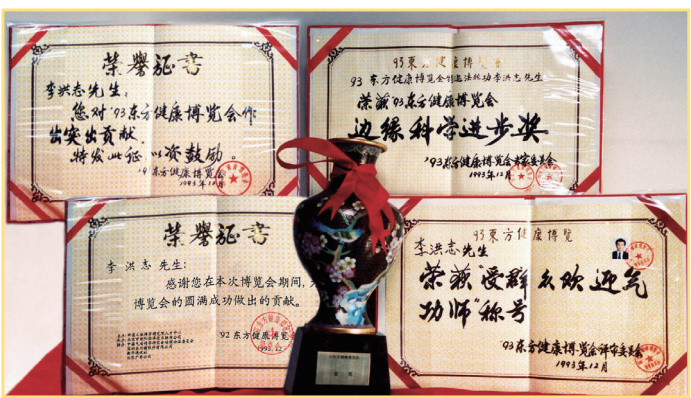 荣誉证书
李洪志先生:
您对'93东方健康博览会作
出突出贡献。
特发此证 以资鼓励。
东方健康博览会
1993年12月
93東方健康博览會
李洪志先生:
荣获'93东方健康博览会
边缘科学进步奖
'93东方健康博览会专家委员会
1993年12月
荣誉证书
李 洪 志 先生:
感谢您在本次博览会期间,
博览会的圆满成功做出的贡献。
'92 东方健康博览
1992.12
93東方健康博览
李洪志先生
荣获"受群众欢迎气
功师"称号
'93东方健康博览会评审委员会
1993年12月